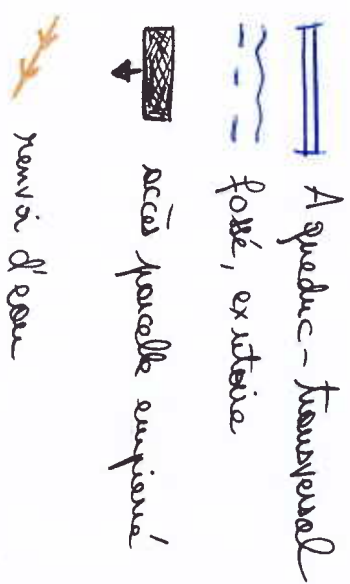 Aqueduc - transversal
fossé, exutoire
accès parcelle empierré
renvoi d'eau